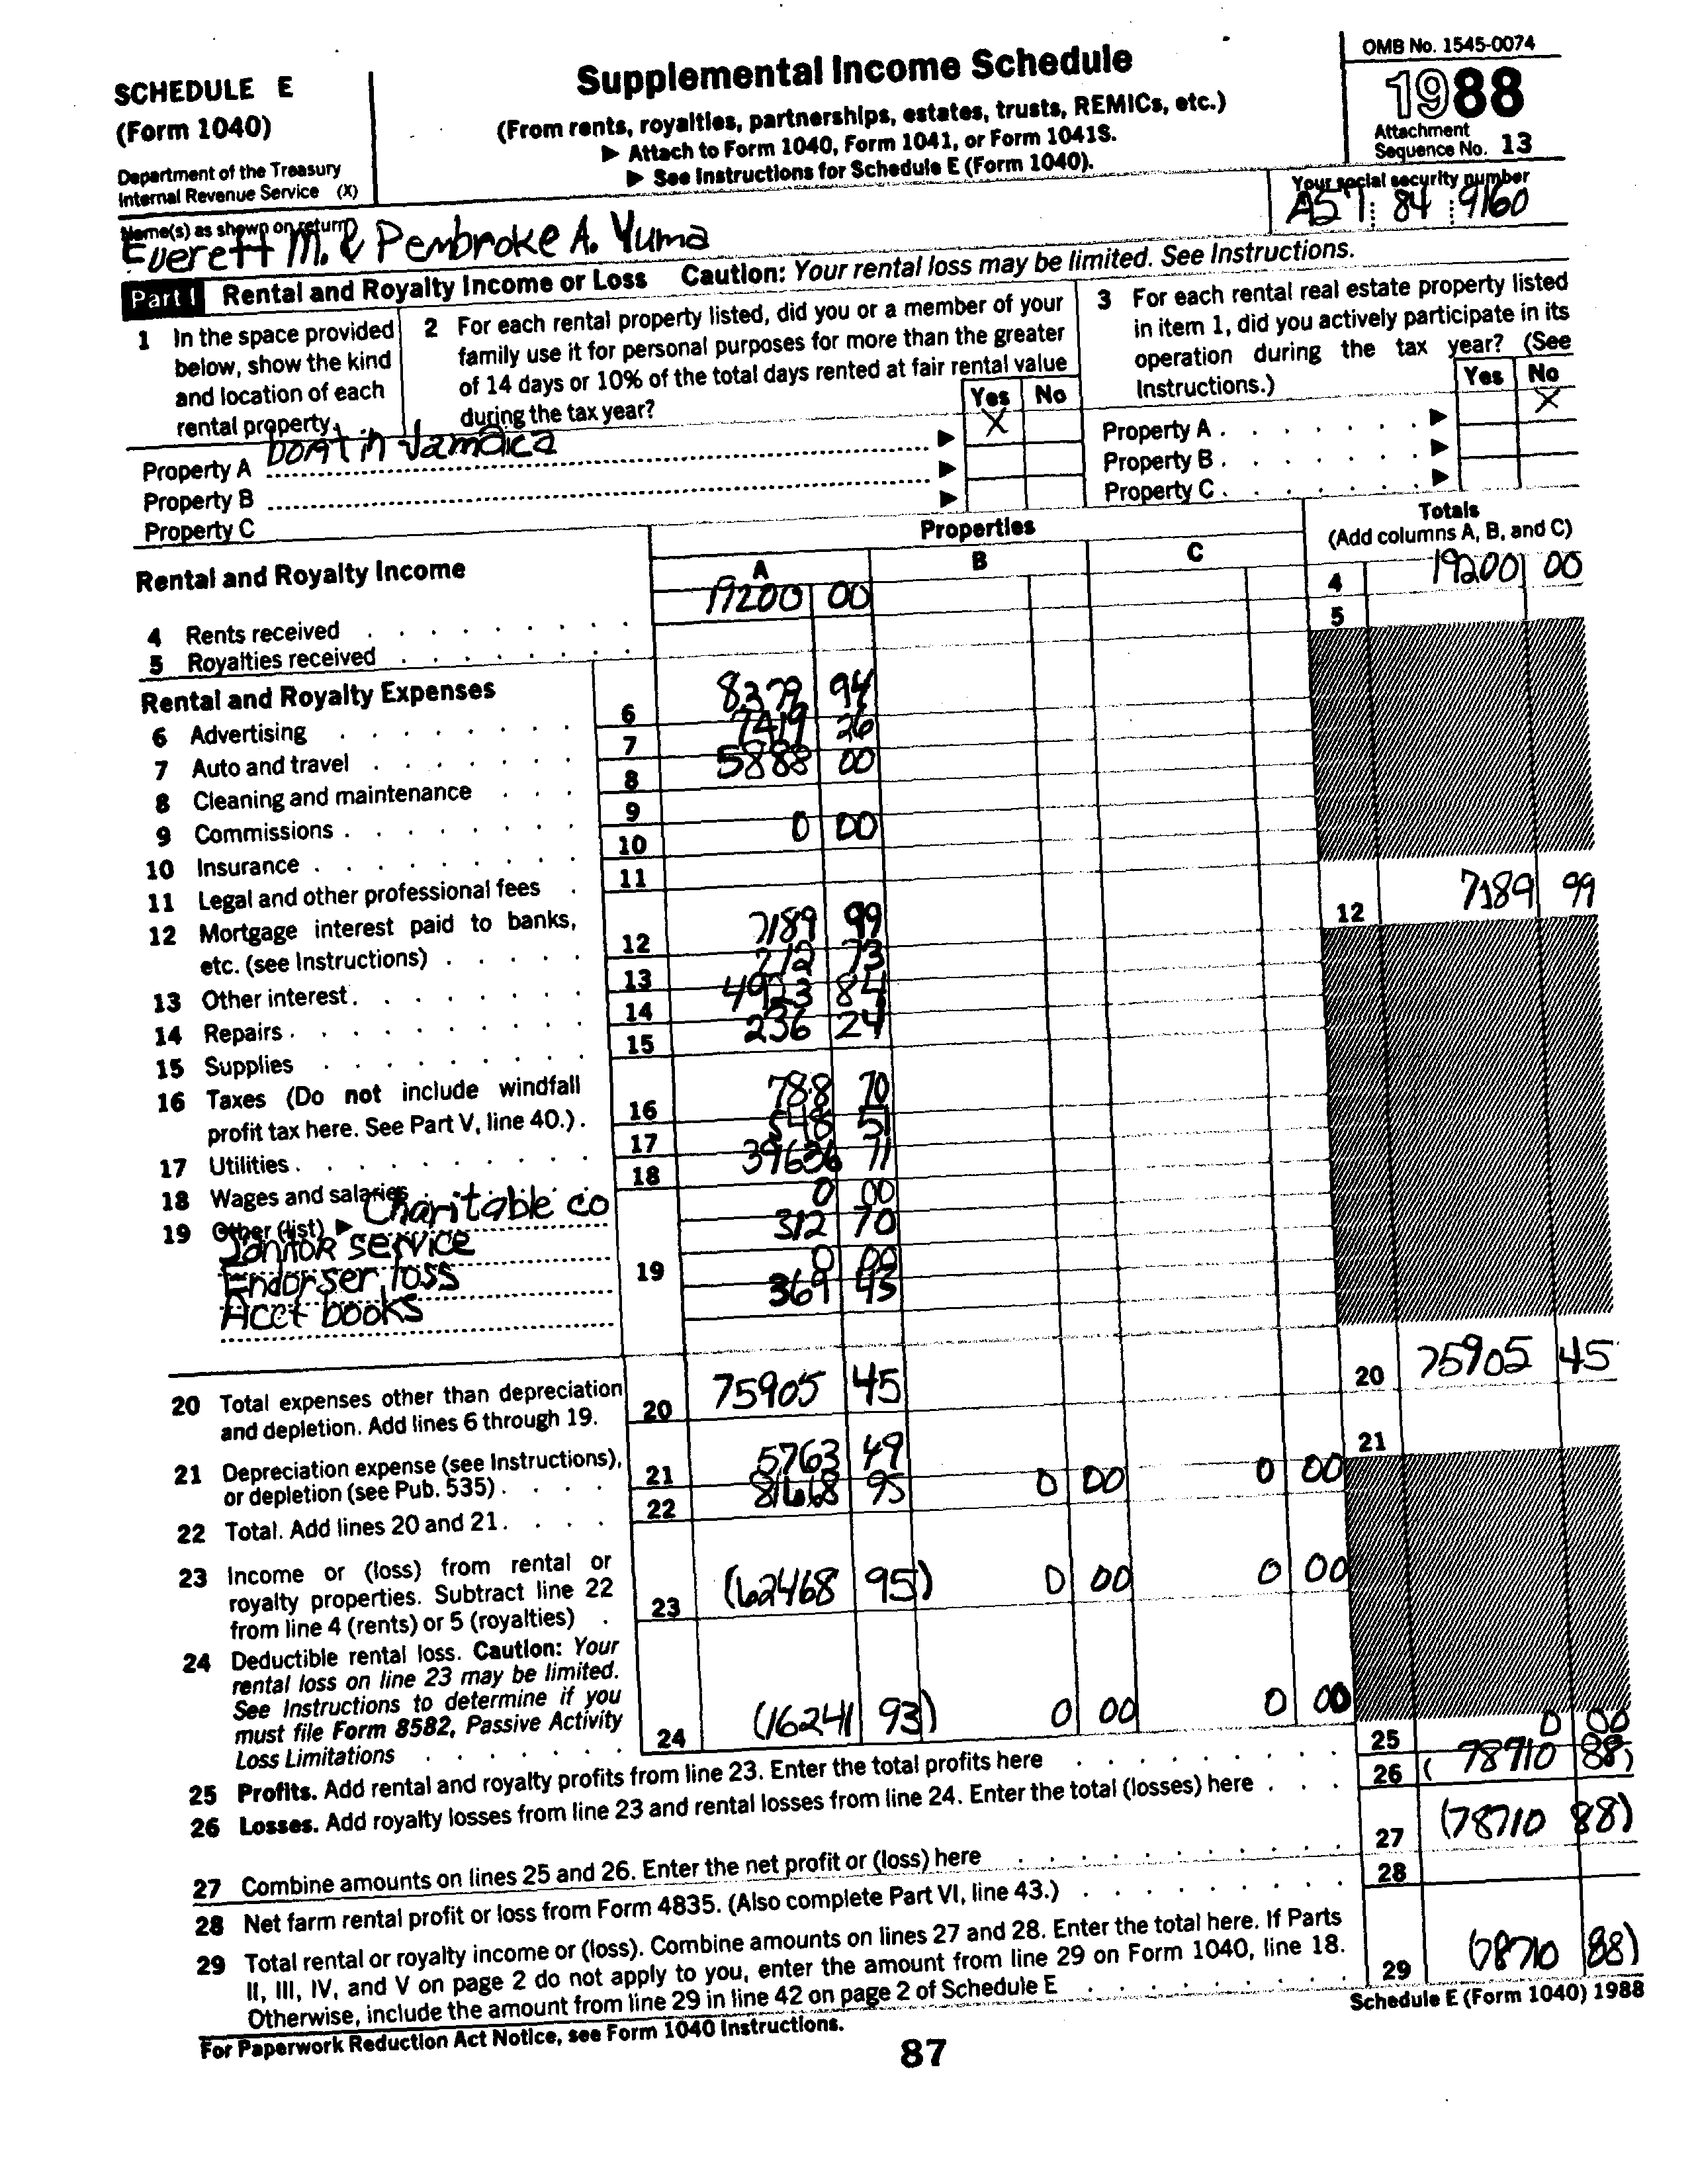 SCHEDULE E
(Form 1040)
Department of the Treasury
Internal Revenue Service (X)
Supplemental Income Schedule
(From rents, royalties, partnerships, estates, trusts, REMICs, etc.)
▶ Attach to Form 1040, Form 1041, or Form 1041S.
▶ See Instructions for Schedule E (Form 1040).
OMB No. 1545-0074
1988
Attachment
Sequence No. 13
Name(s) as shown on return
Everett M. & Pembroke A. Yuma
Your social security number
AS7 84 9160
Part I Rental and Royalty Income or Loss Caution: Your rental loss may be limited. See Instructions.
1 In the space provided
below, show the kind
and location of each
rental property.
2 For each rental property listed, did you or a member of your
family use it for personal purposes for more than the greater
of 14 days or 10% of the total days rented at fair rental value
during the tax year?
Yes No
X
3 For each rental real estate property listed
in item 1, did you actively participate in its
operation during the tax year? (See
Instructions.)
Yes No
X
Property A boat in Jamaica
Property B
Property C
Property A
Property B
Property C
Rental and Royalty Income
Properties
A B C
Totals
(Add columns A, B, and C)
4 Rents received 19200 00 4 19200 00
5 Royalties received 5
Rental and Royalty Expenses
6 Advertising 6 8379 94
7 Auto and travel 7 7419 26
8 Cleaning and maintenance 8 5888 00
9 Commissions 9
10 Insurance 10 0 00
11 Legal and other professional fees 11
12 Mortgage interest paid to banks,
etc. (see Instructions) 12 7189 99 12 7189 99
13 Other interest 13 212 73
14 Repairs 14 4923 84
15 Supplies 15 236 24
16 Taxes (Do not include windfall
profit tax here. See Part V, line 40.) 16 788 70
17 Utilities 17 548 51
18 Wages and salaries 18 39636 11
19 Other (list) ▶ Charitable co 0 00
Janitor service 312 70
Endorser loss 19 0 00
Acct books 369 43
20 Total expenses other than depreciation
and depletion. Add lines 6 through 19. 20 75905 45 20 75905 45
21 Depreciation expense (see Instructions),
or depletion (see Pub. 535) 21 5763 49 21
22 Total. Add lines 20 and 21 22 81668 95 0 00 0 00
23 Income or (loss) from rental or
royalty properties. Subtract line 22
from line 4 (rents) or 5 (royalties) 23 (62468 95) 0 00 0 00
24 Deductible rental loss. Caution: Your
rental loss on line 23 may be limited.
See Instructions to determine if you
must file Form 8582, Passive Activity
Loss Limitations 24 (16241 93) 0 00 0 00
25 Profits. Add rental and royalty profits from line 23. Enter the total profits here 25 0 00
26 Losses. Add royalty losses from line 23 and rental losses from line 24. Enter the total (losses) here 26 (78710 88)
27 Combine amounts on lines 25 and 26. Enter the net profit or (loss) here 27 (78710 88)
28 Net farm rental profit or loss from Form 4835. (Also complete Part VI, line 43.) 28
29 Total rental or royalty income or (loss). Combine amounts on lines 27 and 28. Enter the total here. If Parts
II, III, IV, and V on page 2 do not apply to you, enter the amount from line 29 on Form 1040, line 18.
Otherwise, include the amount from line 29 in line 42 on page 2 of Schedule E 29 (78710 88)
For Paperwork Reduction Act Notice, see Form 1040 Instructions.
Schedule E (Form 1040) 1988
87